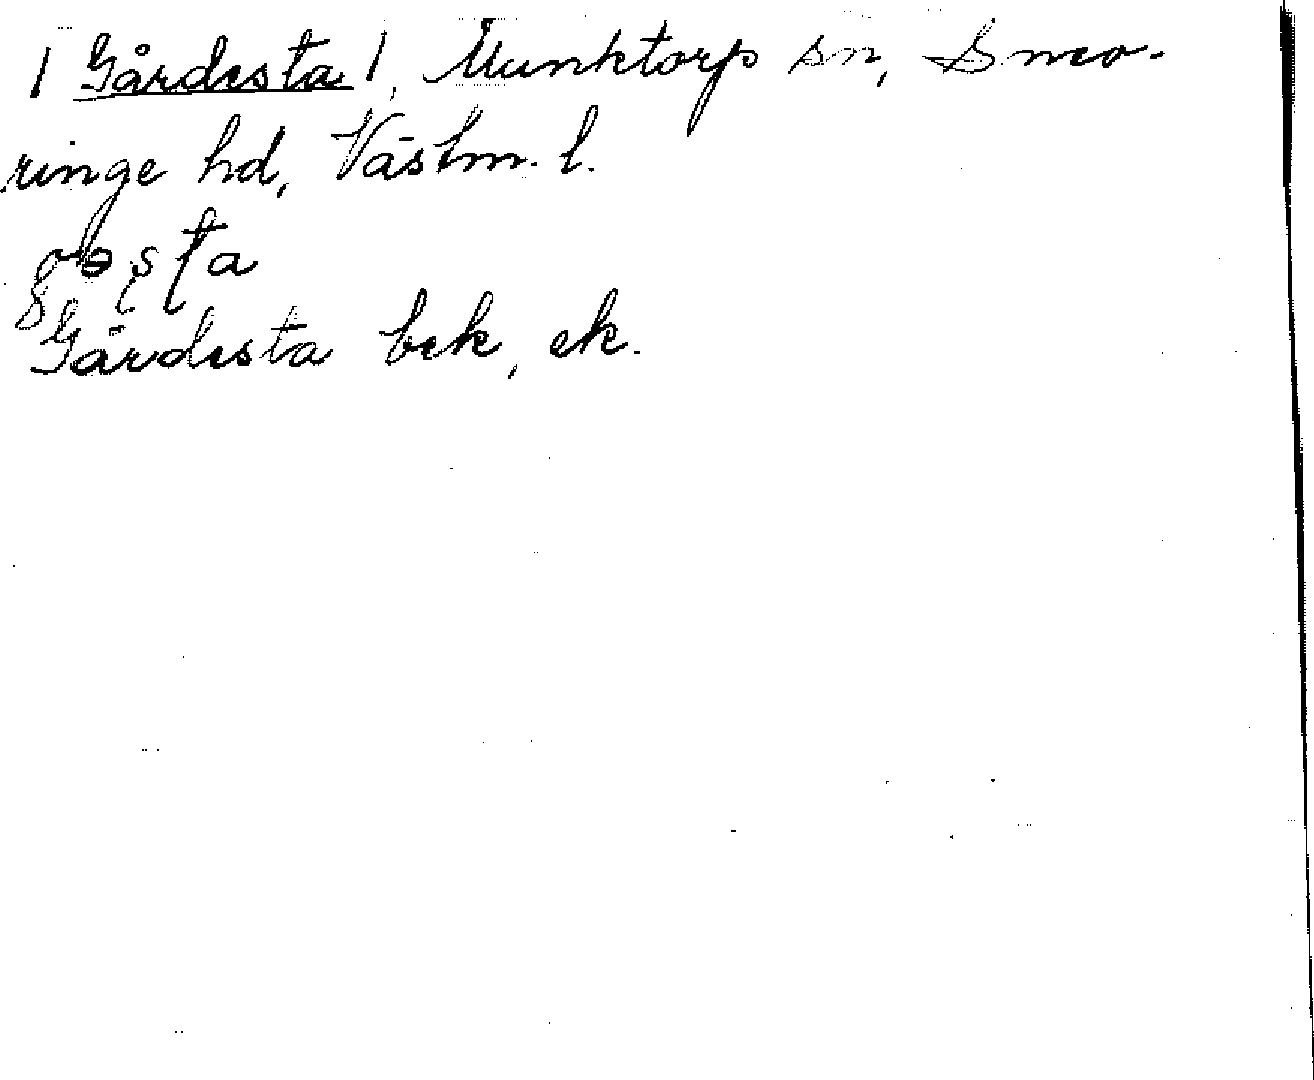 | Gårdesta |, Munktorps sn, Snev-
ringe hd, Västm. l.
Gårdesta bek, ek.